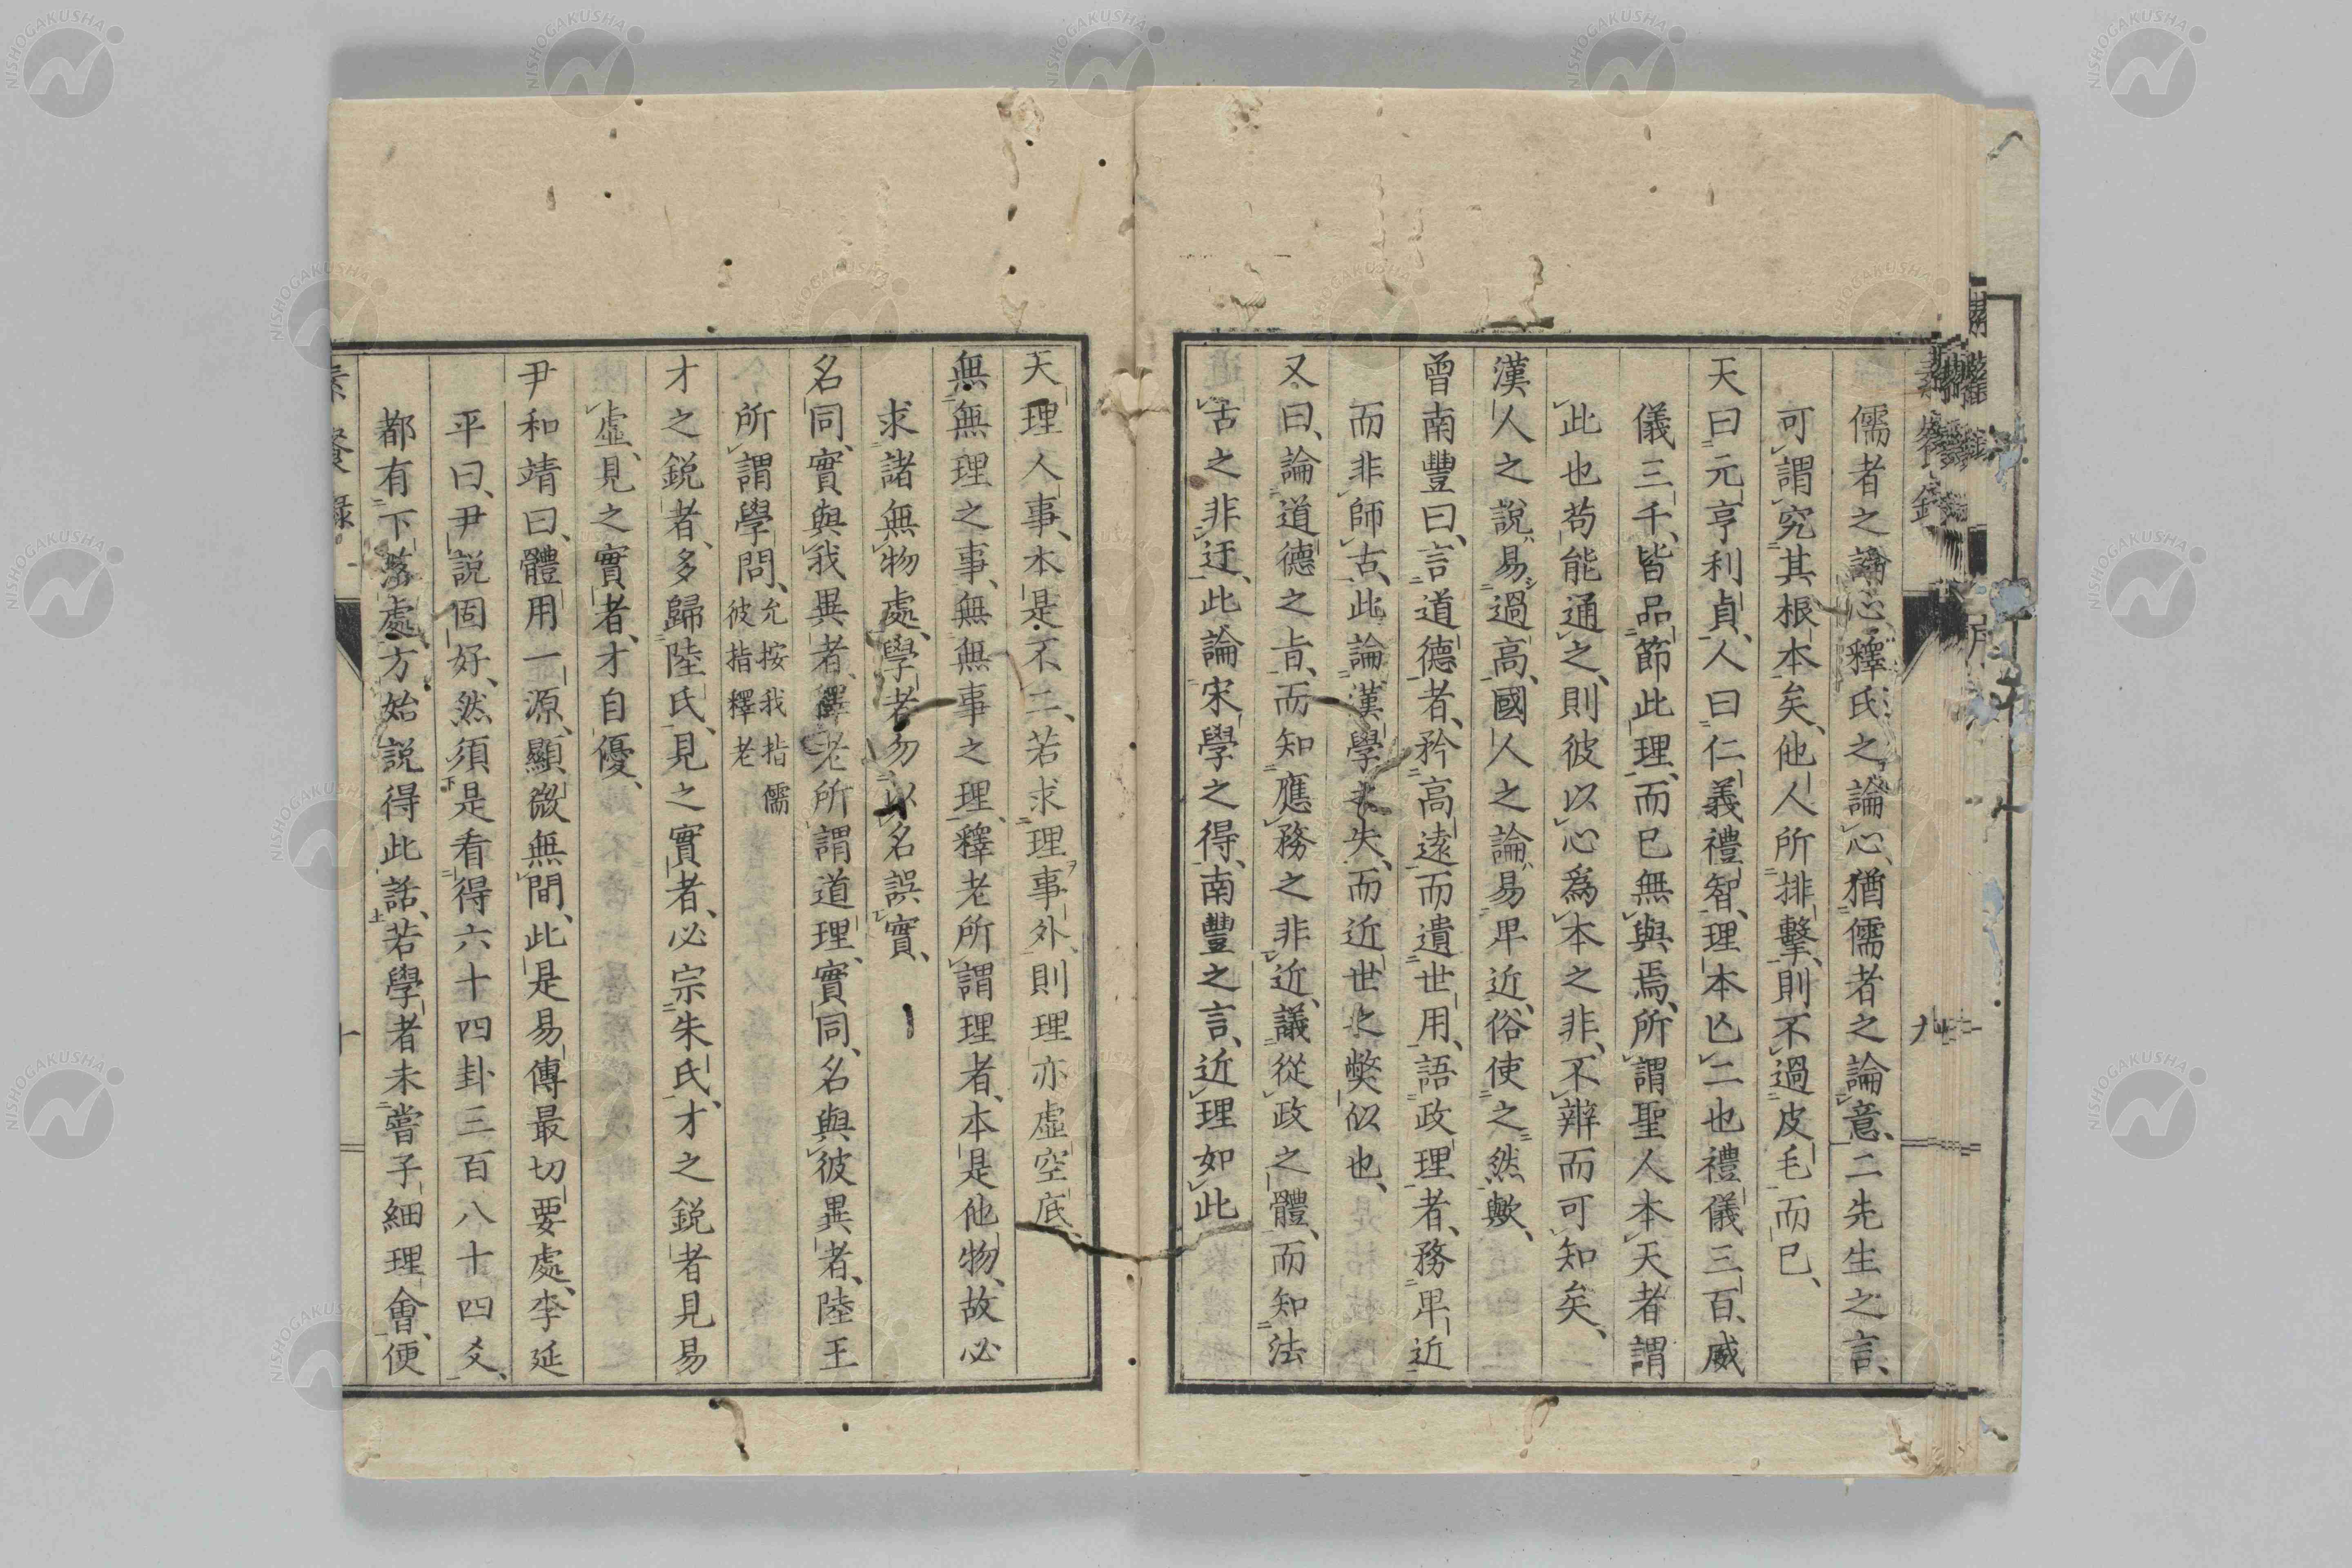 儒者之論心釋氏之論心、猶儒者之論意、二先生之言、
可謂究其根本矣、他人所排擊、則不過皮毛而已、
天曰元亨利貞、人曰仁義禮智、理本匹二也禮儀三百、威
儀三千、皆品節此理、而已無與焉、所謂聖人本天者謂
此也苟能通之、則彼以心爲本之非、不辯而可知矣、
漢人之說易過高、國人之論易卑近、俗使之然歟、
曾南豐曰、言道德者、矜高遠而遺世用、語政理者、務卑近
而非師古、此論漢學之失、而近世之弊似也、
又曰、論道德之旨、而知應務之非近、議從政之體、而知法
古之非迂、此論宋學之得、南豐之言、近理如此
天理人事、本是不二、若求理事外、則理亦虛空底
無無理之事、無無事之理、釋老所謂理者、本是他物、故必
求諸無物處、學者勿以名誤實、
名同、實與我異者、釋老所謂道理、實同、名與彼異者、陸王
所謂學問、允按我指儒
彼指釋老
才之鋭者、多歸陸氏、見之實者、必宗朱氏、才之鋭者見易
虛、見之實者、才自優、
尹和靖曰、體用一源、顯微無間、此是易傳最切要處、李延
平曰、尹說固好、然須是看得六十四卦三百八十四爻、
都有下落處、方始説得此話、若學者未嘗子細理會、便
NISHOGAKUSHA